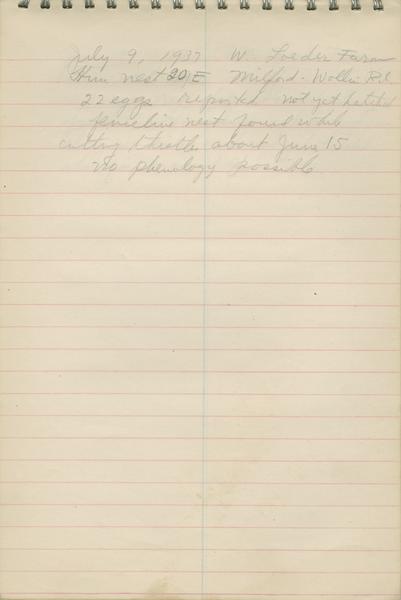 July 9, 1937 W. Loeder Farm
Hun nest 20E Milford - Rd
22 eggs reported not yet hatched
fenceline nest found while
cutting thistles about June 15
No phenology possible